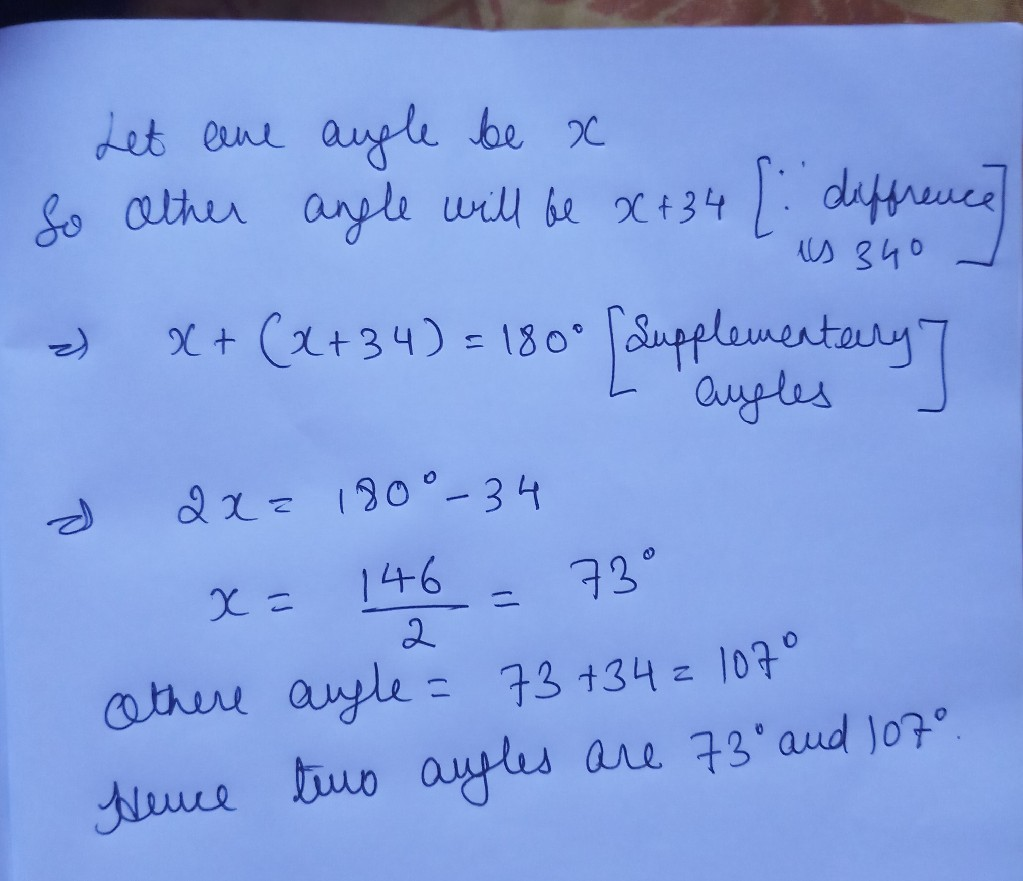 Let one angle be x
So other angle will be x+34 [∵ diffrence
is 34°]
⇒ x + (x+34) = 180° [Supplementary
angles]
⇒ 2x = 180° - 34
x = 146/2 = 73°
Othere angle = 73 + 34 = 107°
Hence two angles are 73° and 107°.